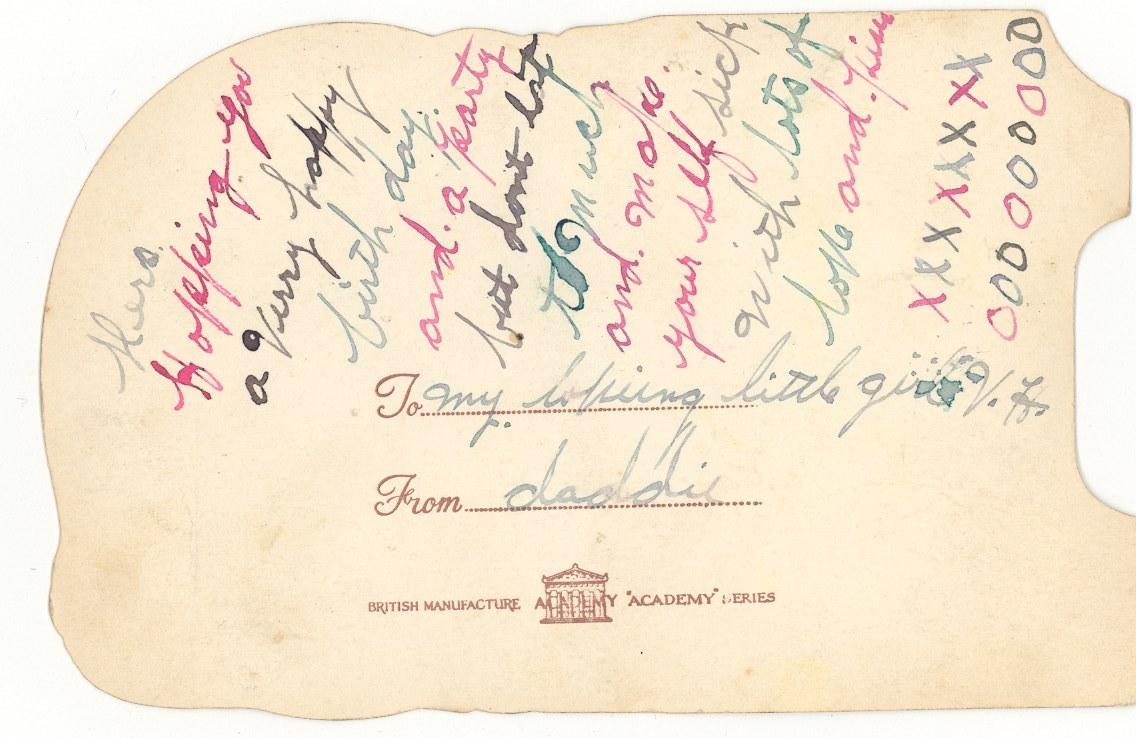 Hers
Hopping you
a Verry happy
birth day.
and. a party
but dont eat
to much
and. make
your self sick
with lots of
love and.
XXXXXXXXX
OOOOOOOOO
To my loveing little girl V. H.
From daddie
BRITISH MANUFACTURE ACADEMY "ACADEMY" SERIES